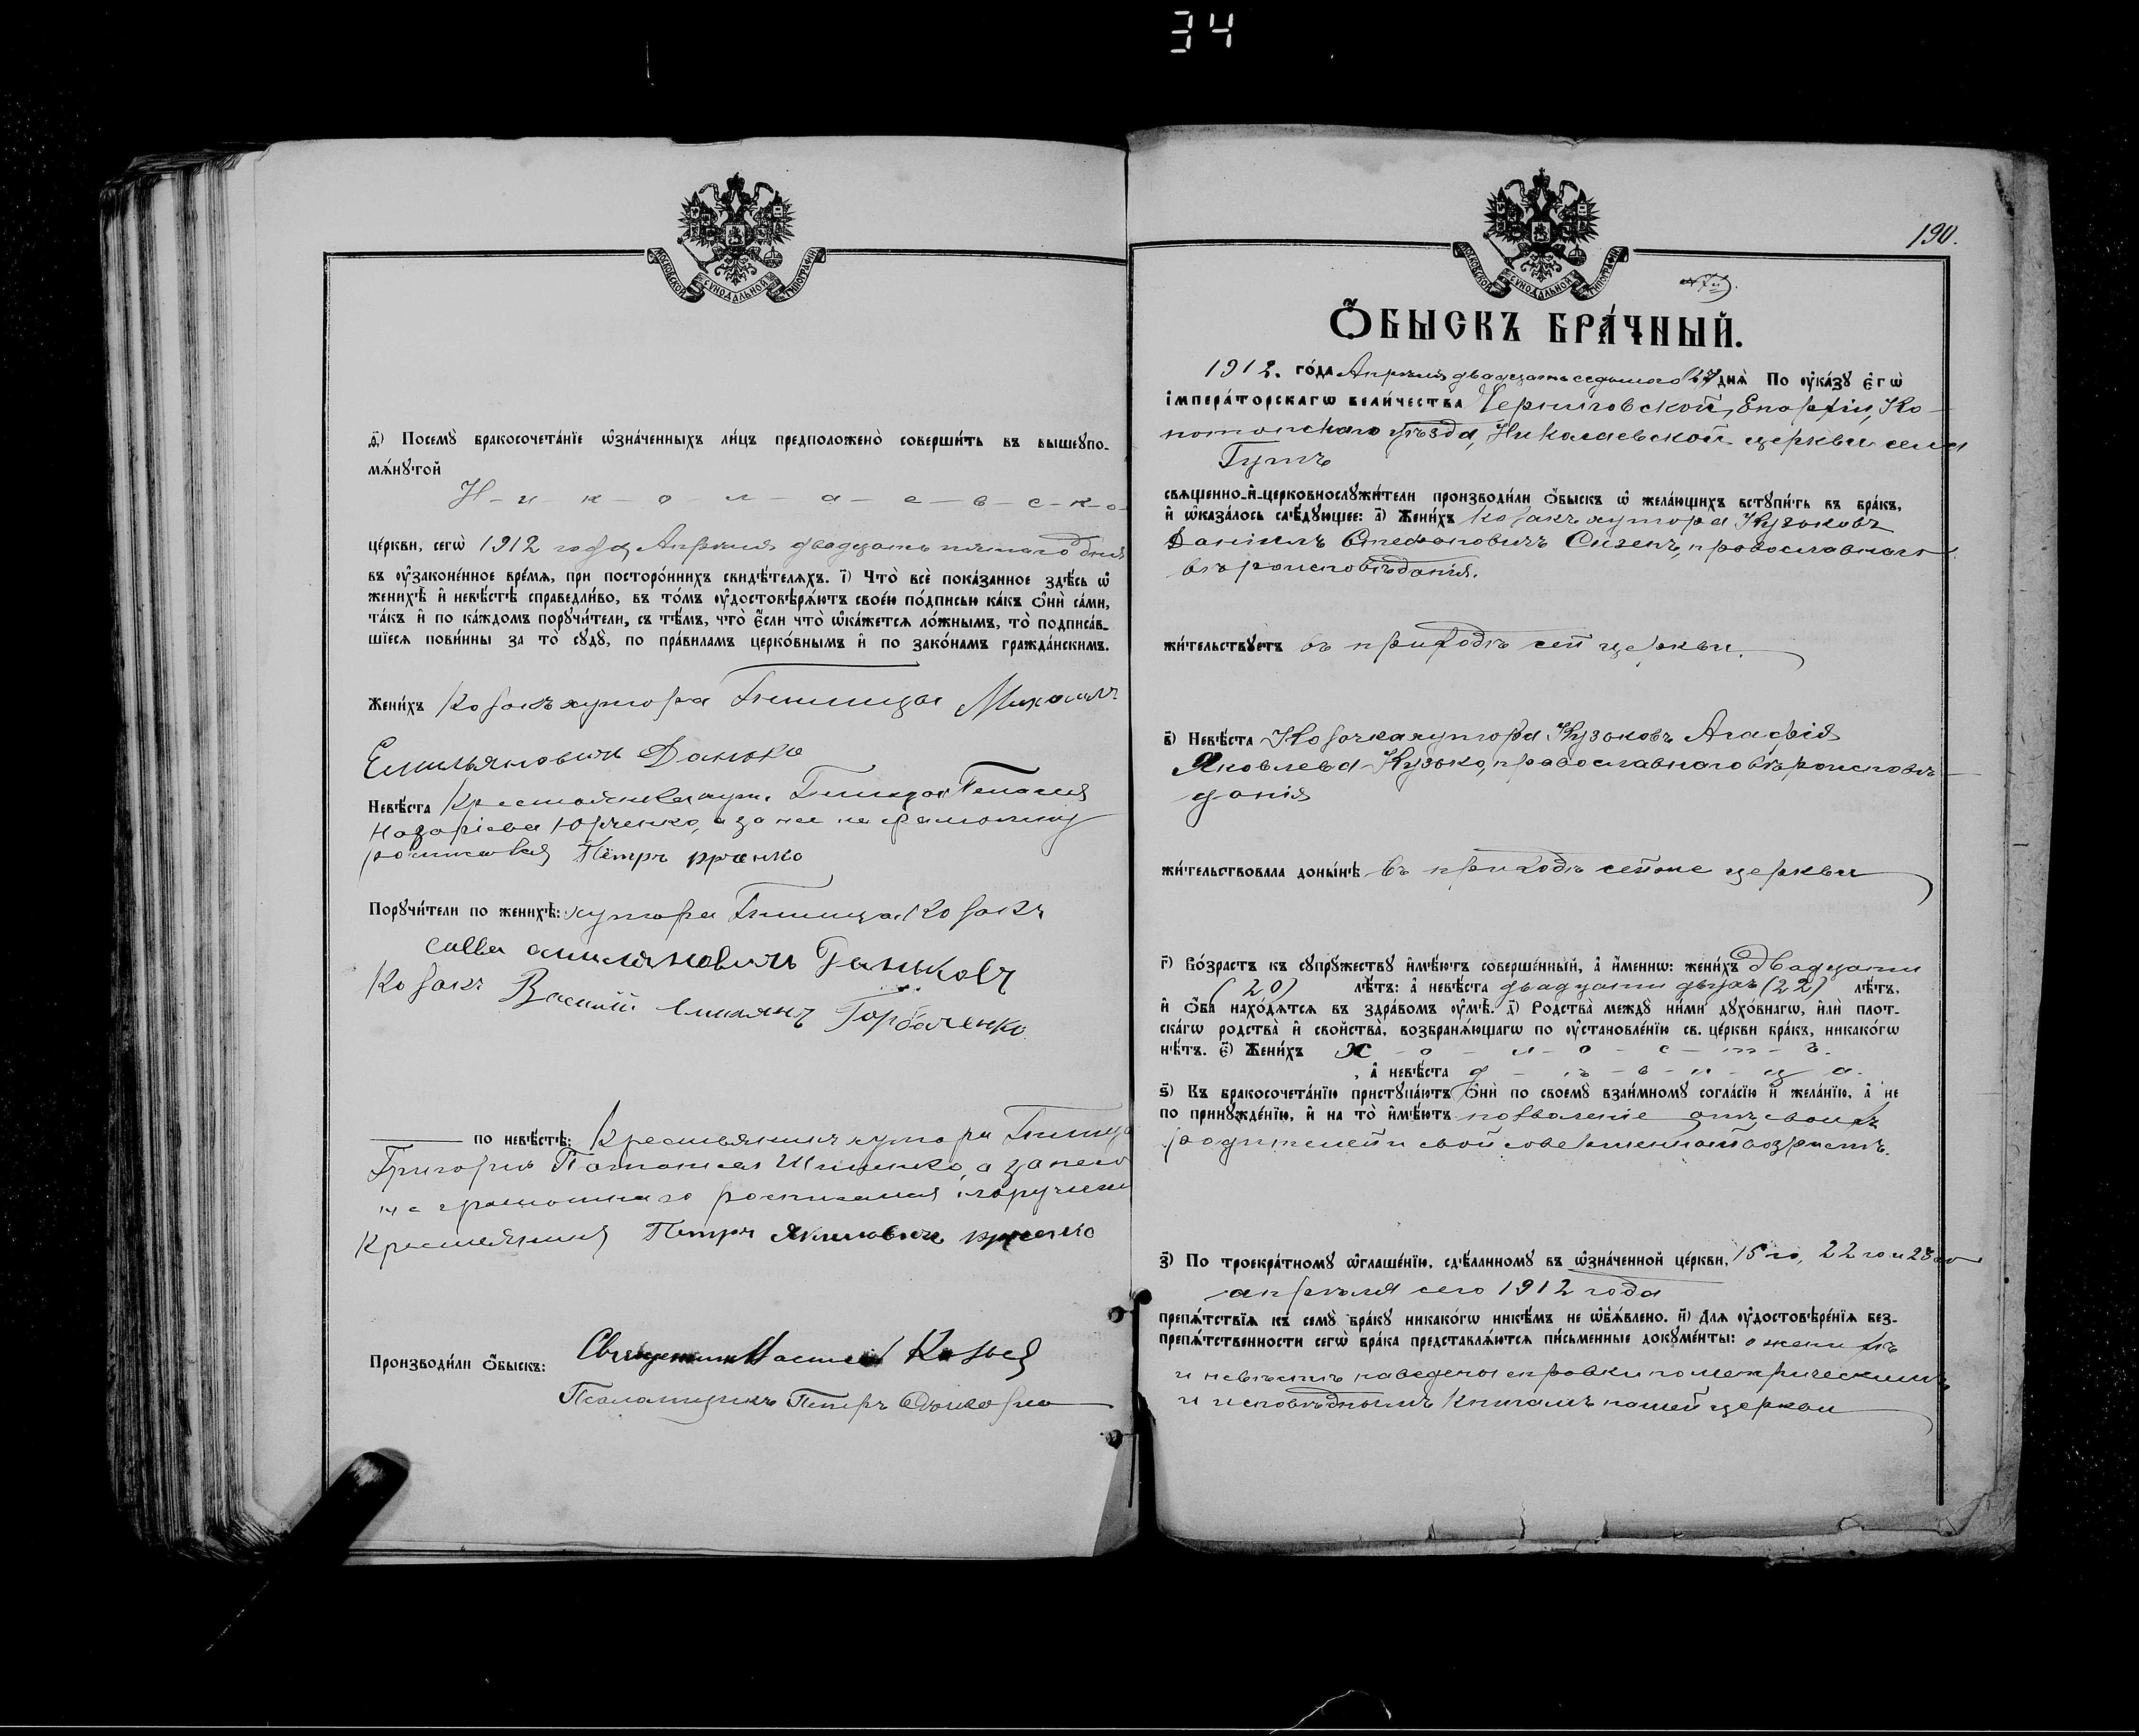 34
МОСКОВСКОЙ СУНОДАЛЬНОЙ ТИПОГРАФІИ
Ѳ҃) Посемꙋ̀ бракосочета́нїе ѡ҆зна́ченныхъ ли́цъ предположено̀ соверши́ть въ вышеупо-
мѧ́нꙋтой
Н - и - к - о - л - а - е - в - с - к - о -
це́ркви, сегѡ̀ 1912 года, Апрѣля двадцать пятаго дня
въ ᲂу҆зако́ненное вре́мѧ, при посторо́ннихъ свидѣ́телѧхъ. і҃) Что̀ всѐ пока́занное здѣ́сь ѡ҆
женихѣ̀ и҆ невѣ́стѣ справедли́во, въ то́мъ ᲂу҆достовѣрѧ́ютъ своє́ю по́дписью ка́къ ѻ҆нѝ са́ми,
та́къ и҆ по ка́ждомъ порꙋчи́тели, съ тѣ́мъ, что̀ є҆́сли что̀ ѡ҆ка́жетсѧ ло́жнымъ, то̀ подписа́в-
шїесѧ пови́нны за то̀ сꙋдꙋ̀, по пра́виламъ церко́внымъ и҆ по зако́намъ гражда́нскимъ.
Жени́хъ Козакъ хутора Гнилица Михаилъ
Емильяновичъ Данько
Невѣ́ста Крестьянка хут. Гнилица Пелагея
Назаріева Юрченко, а за нее неграмотну
росписався Петръ Юрченко
Порꙋчи́тели по женихѣ̀: хутора Гнилица Козакъ
Савва Емиляновичъ Даньковъ
Козакъ Василій Горбаченко
по невѣ́стѣ: Крестьянинъ хутора Гнилица
Григорій а за него
не грамотнаго росписался поручител
Крестьянинъ Петръ Якимовичъ Юрченко
Производи́ли ѻ҆́быскъ: Священникъ
Псаломщикъ Петръ
190.
МОСКОВСКОЙ СУНОДАЛЬНОЙ ТИПОГРАФІИ
Ѻ҆́БЫСКЪ БРА́ЧНЫЙ.
1912. го́да Апрѣля двадцать седьмого 27 днѧ̀ По ᲂу҆ка́зꙋ є҆гѡ̀
і҆мпера́торскагѡ вели́чества Черниговской, Епархіи, Ко-
нотопскаго уѣзда, Николаевской церкви села
Гутъ
свѧщенно-и҆-церковнослꙋжи́тели производи́ли ѻ҆́быскъ ѡ҆ жела́ющихъ встꙋпи́ть въ бра́къ,
и҆ ѡ҆каза́лось слѣ́дꙋющее: а҃) Жени́хъ Козакъ хутора Кузьковъ
Даніилъ Стефановичъ Сизенъ, православнаго
вѣроисповѣданія.
жи́тельствꙋетъ въ приходѣ сей церкви.
в҃) Невѣ́ста Козачка хутора Кузьковъ Агафія
Яковлева Кузько, православнаго вѣроисповѣ-
данія
жи́тельствовала доны́нѣ въ приходѣ сейже церкви
г҃) Во́зрастъ къ сꙋпрꙋ́жествꙋ и҆мѣ́ютъ соверше́нный, а҆ и҆́меннѡ: жени́хъ двадцати
(20) лѣ́тъ: а҆ невѣ́ста двадцати двухъ (22) лѣ́тъ,
и҆ ѻ҆́ба нахо́дѧтсѧ въ здра́вомъ ᲂу҆мѣ̀. д҃) Родства̀ междꙋ ни́ми дꙋхо́внагѡ, и҆лѝ плот-
ска́гѡ родства̀ и҆ свойства̀, возбранѧ́ющагѡ по ᲂу҆становле́нїю св. це́ркви бра́къ, никако́гѡ
нѣ́тъ. є҃) Жени́хъ х - о - л - о - с - т - ъ.
, а҆ невѣ́ста д - ѣ - в - и - ц - а.
ѕ҃) Къ бракосочета́нїю пристꙋпа́ютъ ѻ҆нѝ по своемꙋ̀ взаи́мномꙋ согла́сїю и҆ жела́нїю, а҆ не
по принꙋжде́нїю, и҆ на то̀ и҆мѣ́ютъ позволеніе отъ своихъ
родителей и свой совершенный возрастъ.
з҃) По троекра́тномꙋ ѡ҆глаше́нїю, сдѣ́ланномꙋ въ ѡ҆зна́ченной це́ркви, 15 го, 22 го и 23 го
апрѣля сего 1912 года
препѧ́тствїѧ къ семꙋ̀ бра́кꙋ никако́гѡ никѣ́мъ не ѡ҆б̾ѧ́влено. и҃) Для ᲂу҆достовѣре́нїѧ без-
препѧ́тственности сегѡ̀ бра́ка представлѧ́ютсѧ пи́сьменные докꙋме́нты: о женихѣ
и невѣстѣ наведены справки по метрическимъ
и исповѣднымъ книгамъ нашей церкви